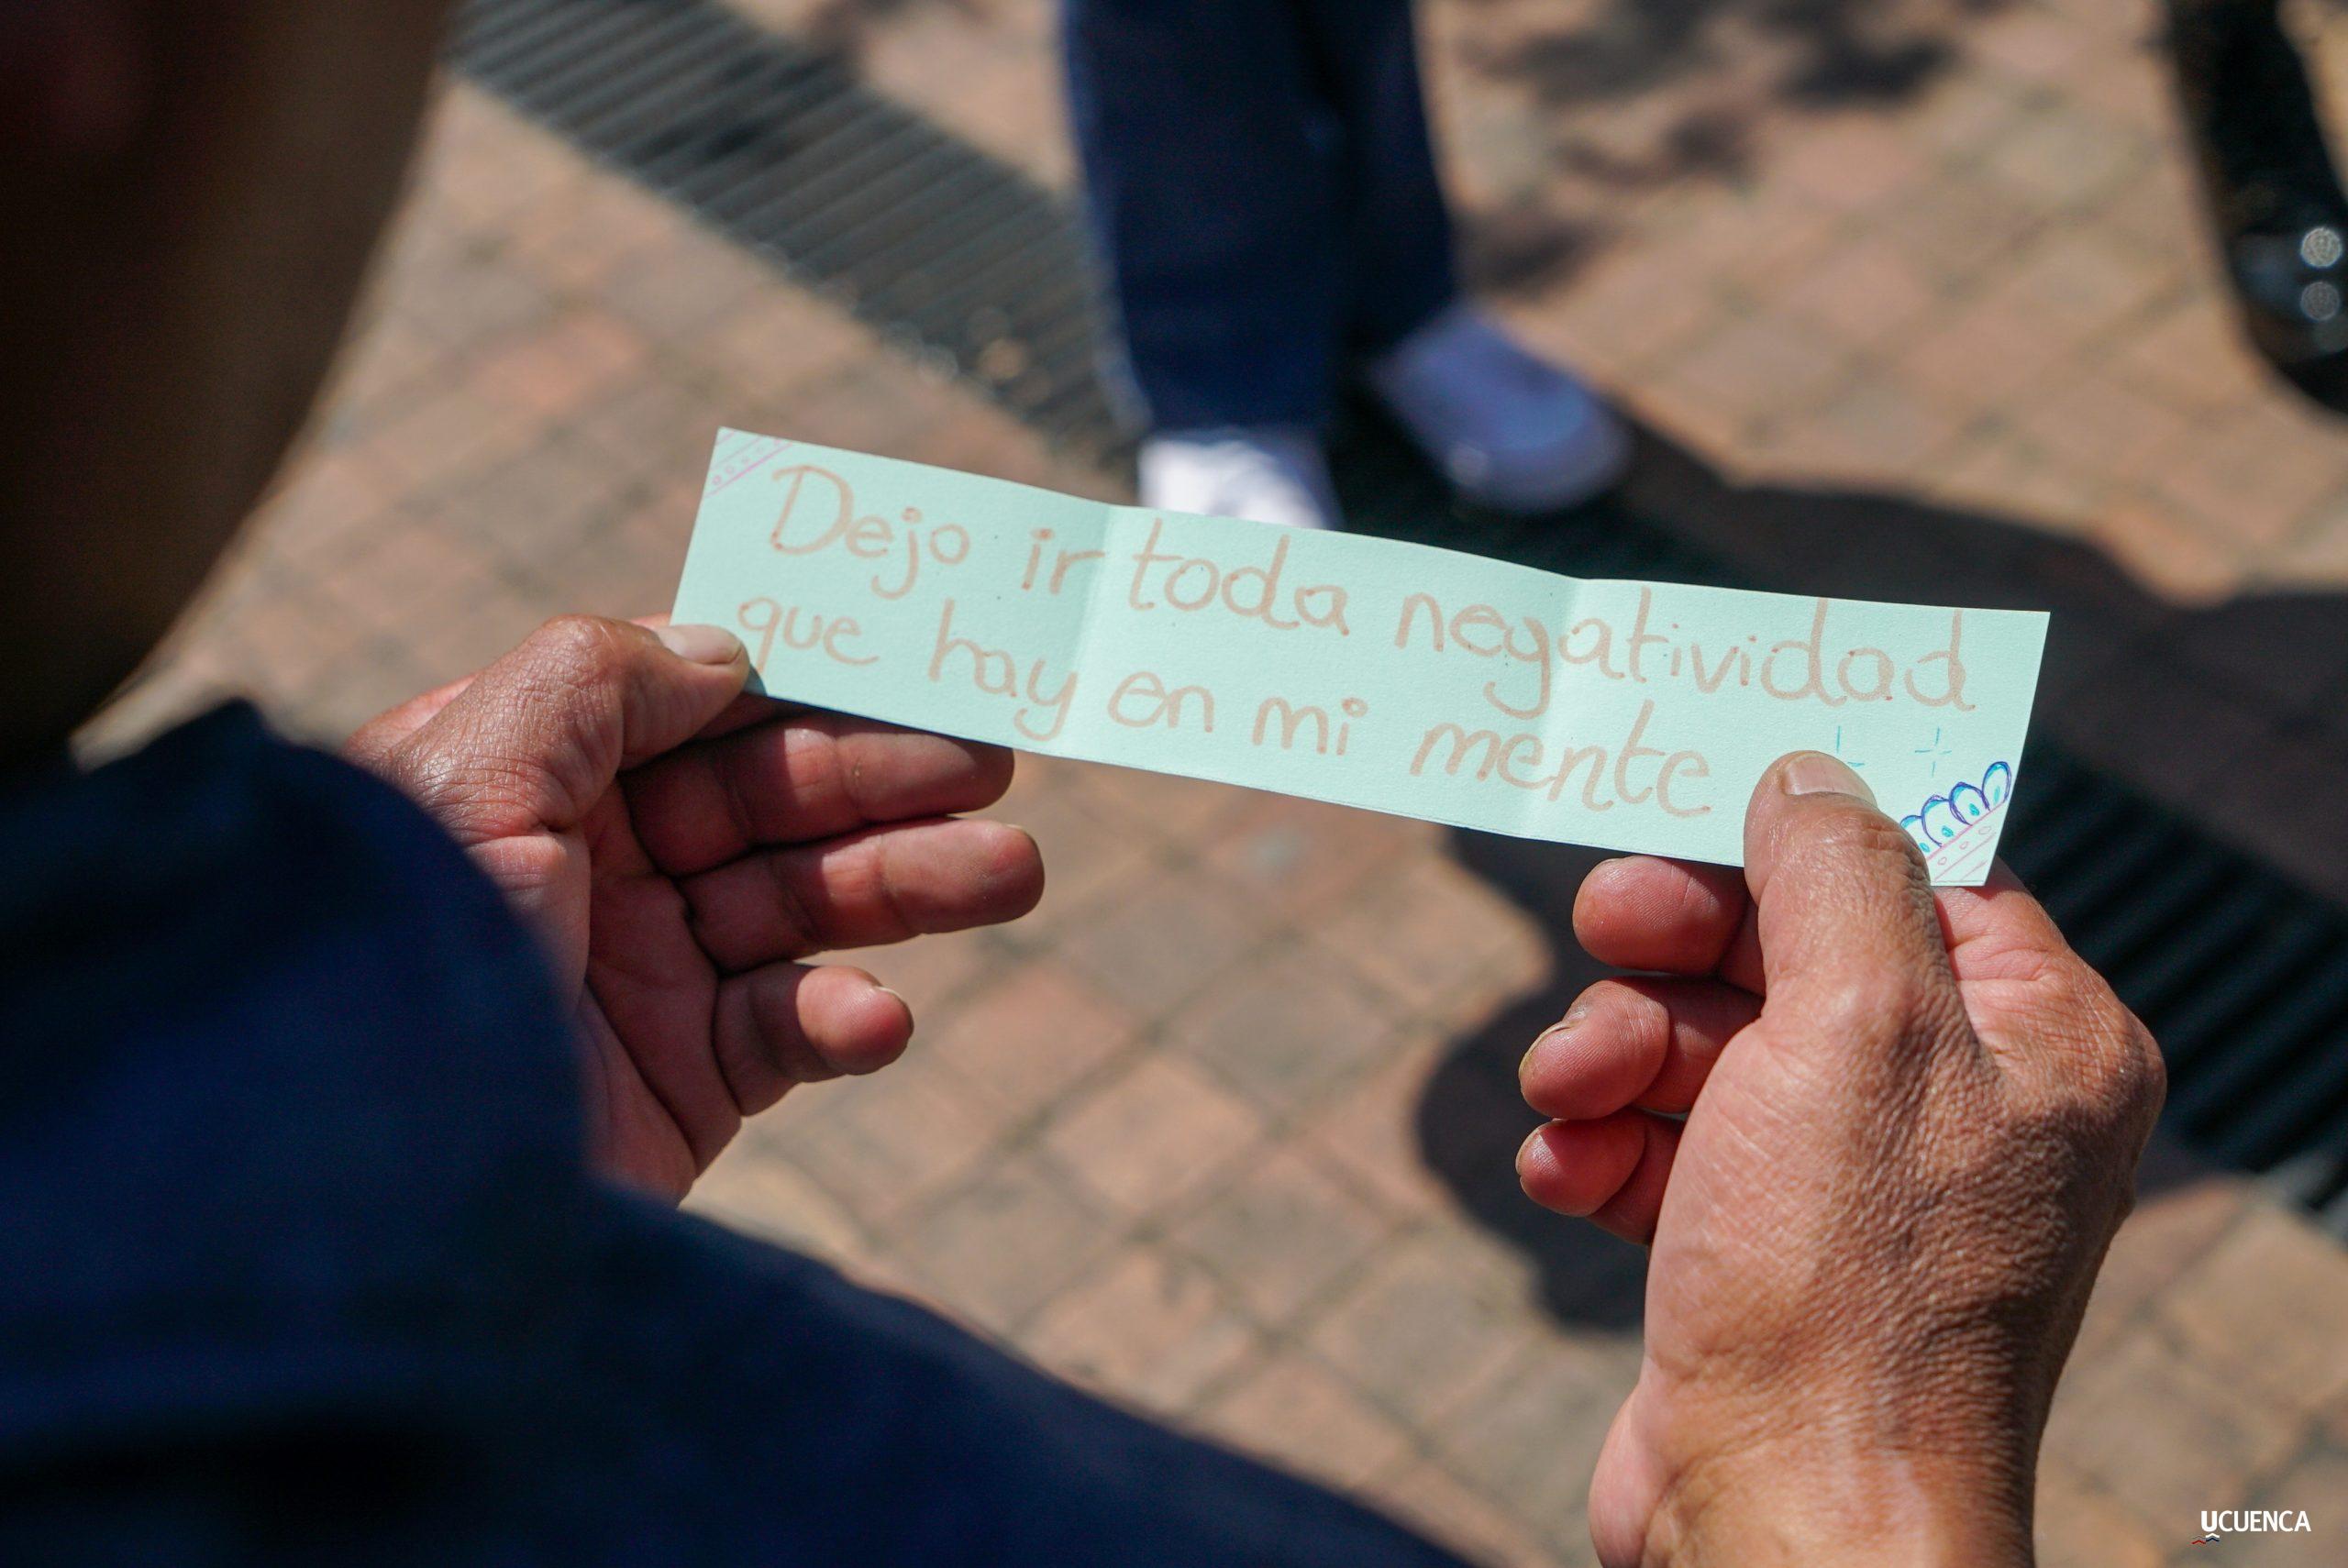 Dejo ir toda negatividad
que hay en mi mente
UCUENCA